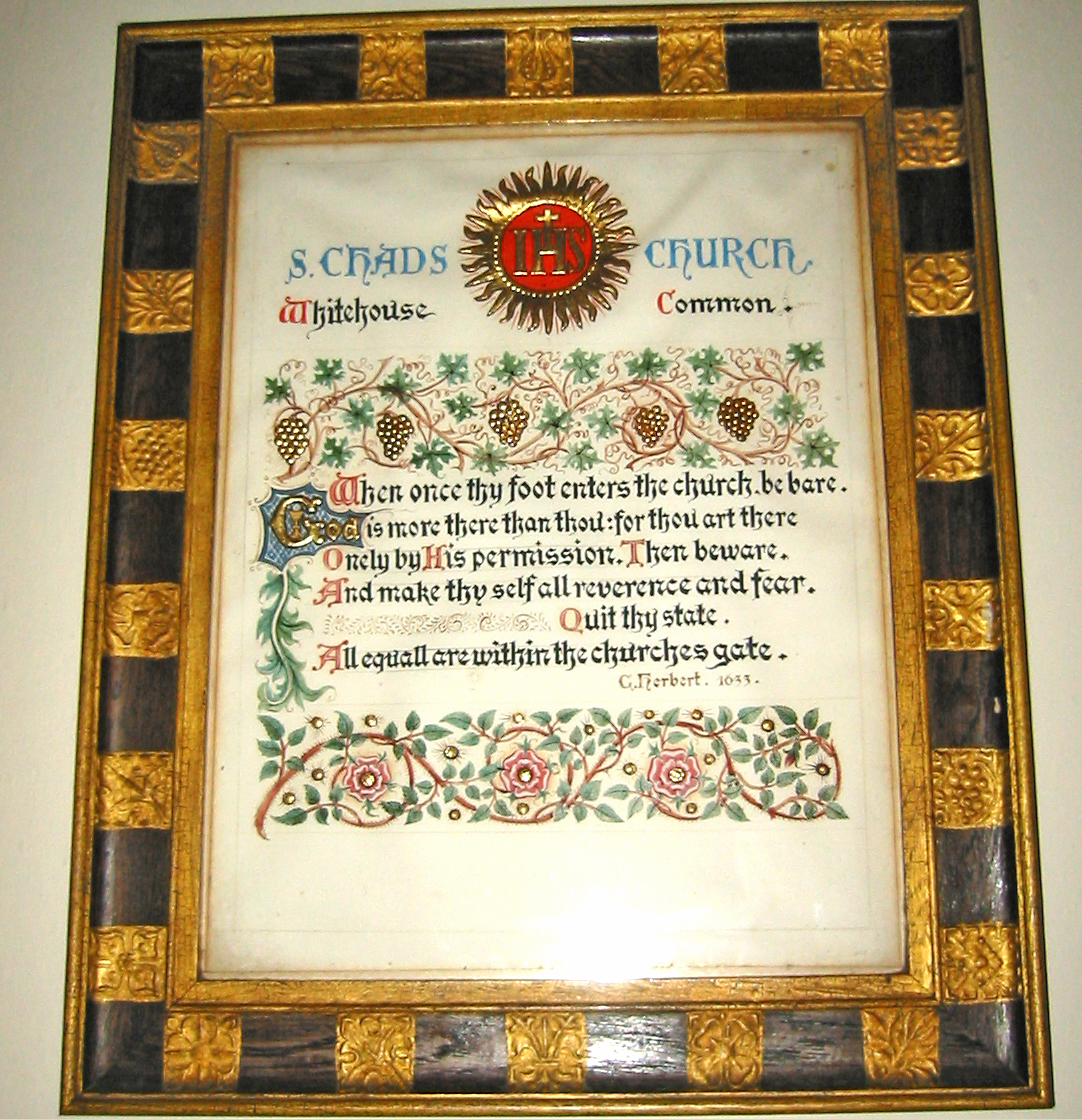 S. CHADS IHS CHURCH.
Whitehouse Common.
When once thy foot enters the church, be bare.
God is more there than thou: for thou art there
Onely by His permission. Then beware.
And make thy self all reverence and fear.
Quit thy state.
All equall are within the churches gate.
G. Herbert. 1633.